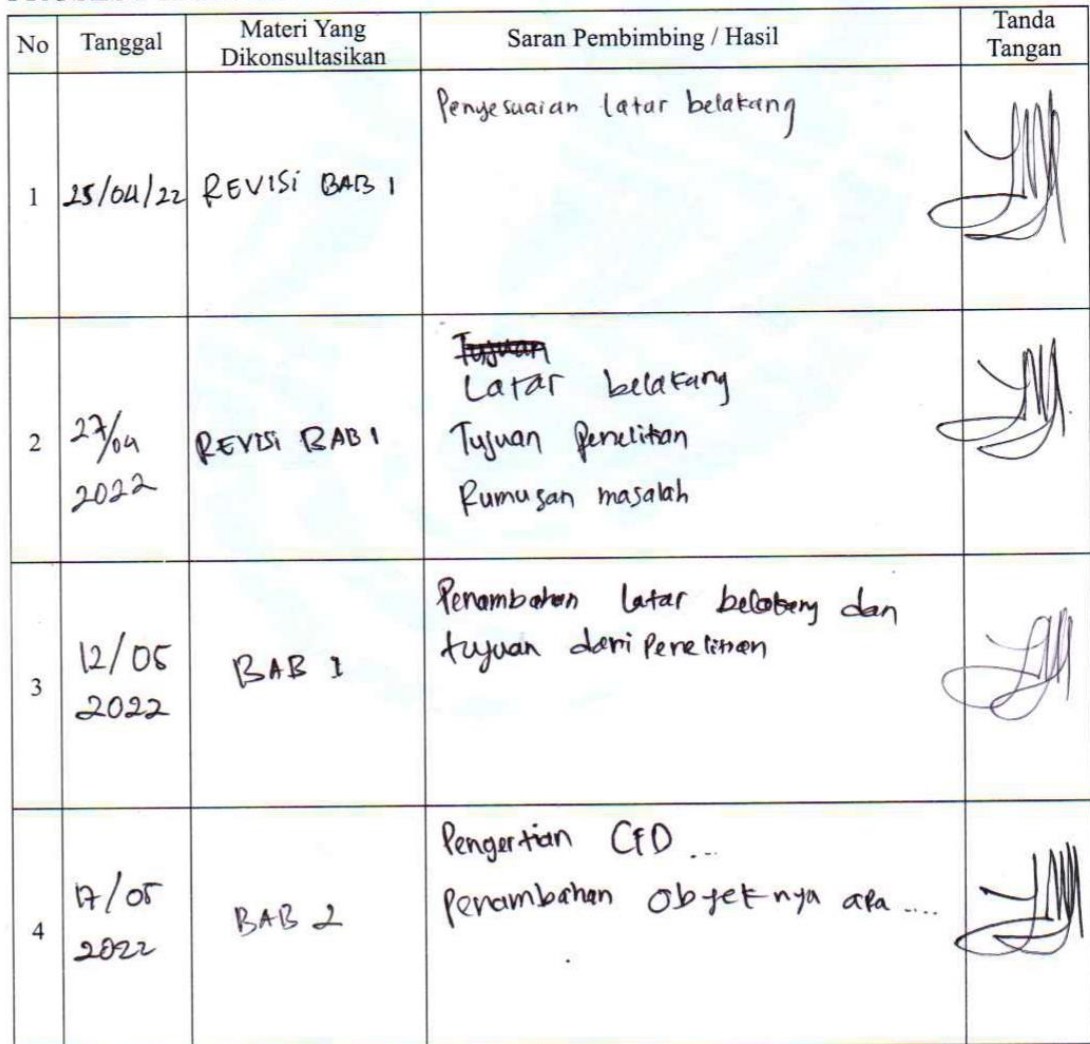 No Tanggal Materi Yang Dikonsultasikan Saran Pembimbing / Hasil Tanda Tangan
1 25/04/22 REVISI BAB 1 Penyesuaian latar belakang
2 27/04 2022 REVISI BAB 1
Tujuan
Latar belakang
Tujuan Penelitian
Rumusan masalah
3 12/05 2022 BAB 1
Penambahan latar belakang dan
tujuan dari Penelitian
4 17/05 2022 BAB 2
Pengertian CFD ...
Penambahan Objeknya apa ....